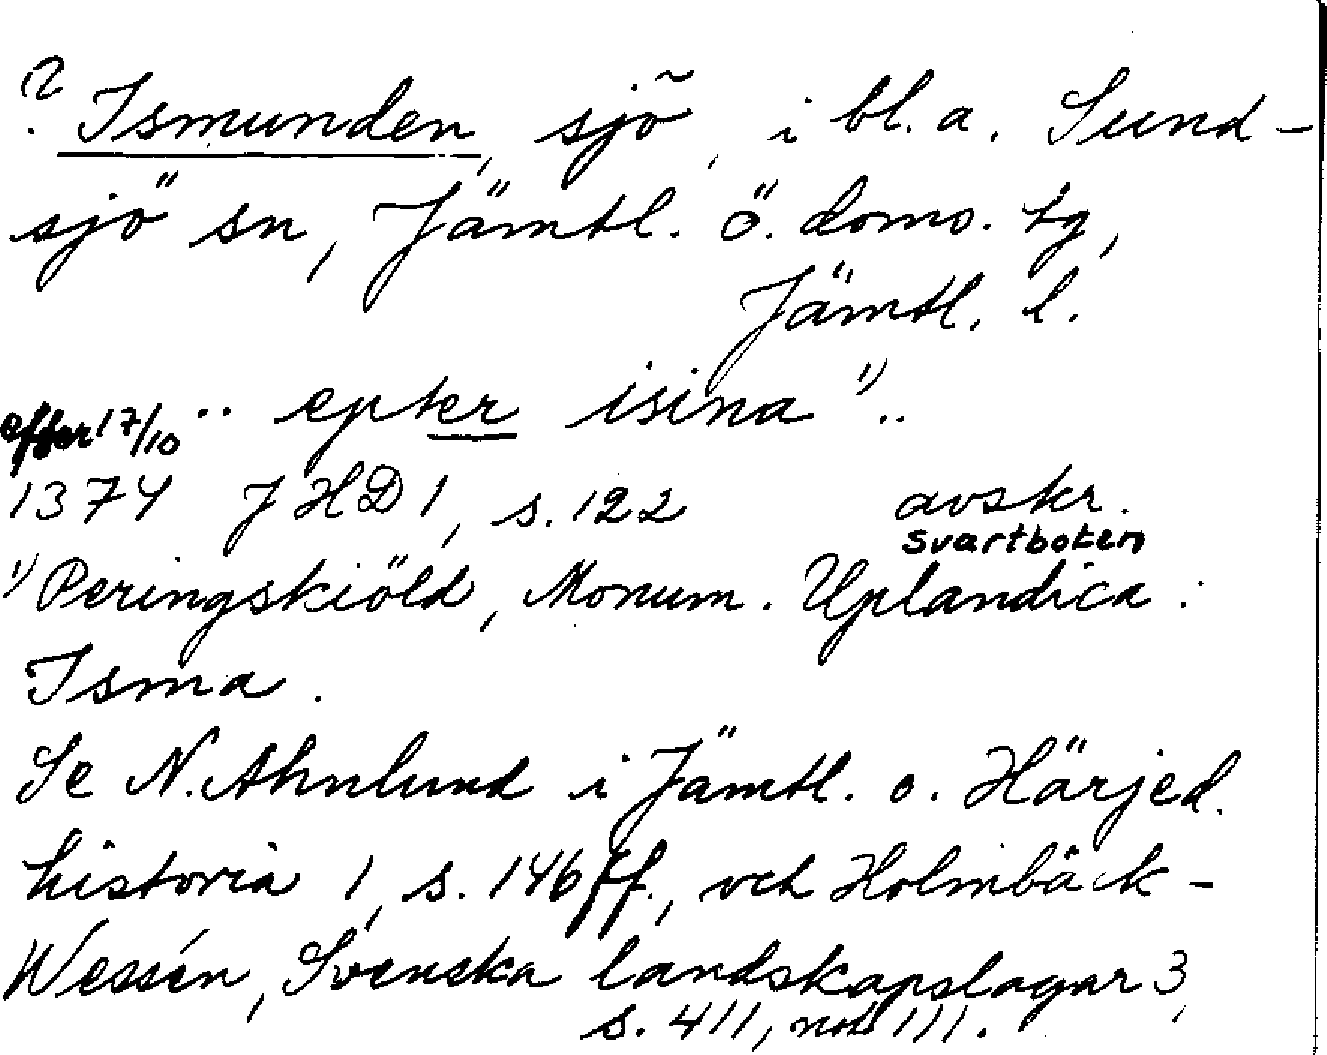 ? Ismunden, sjö, i bl.a. Sund-
sjö sn, Jämtl. ö. doms. tg,
Jämtl. l.
efter 17/10 .. epter isina 1) ..
1374 JHD 1, s. 122 avskr.
svartboken
1) Peringskiöld, Monum. Uplandica:
Isma.
Se N. Ahnlund i Jämtl. o. Härjed.
historia 1, s. 146 ff., och Holmbäck-
Wessén, Svenska landskapslagar 3,
s. 411, not 111.